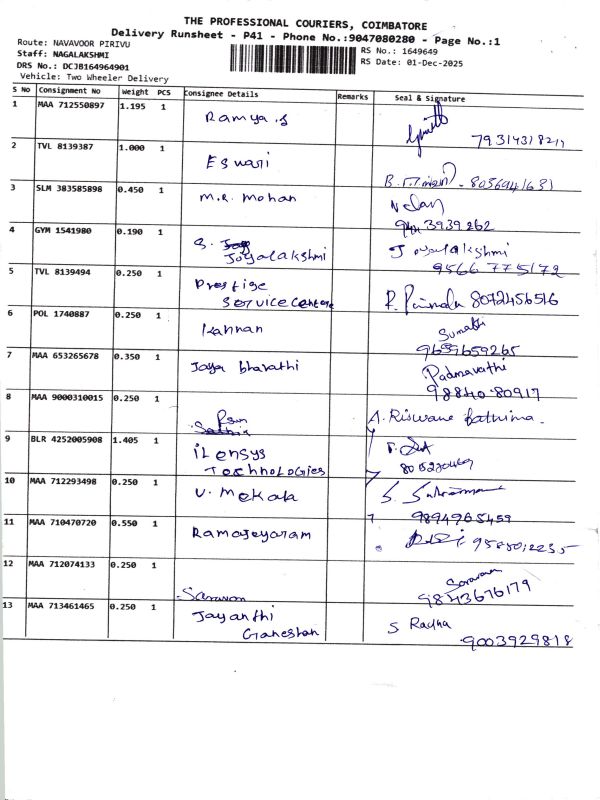 THE PROFESSIONAL COURIERS, COIMBATORE
Delivery Runsheet - P41 - Phone No.:9047080280 - Page No.:1
Route: NAVAVOOR PIRIVU
RS No.: 1649649
Staff: NAGALAKSHMI
RS Date: 01-Dec-2025
DRS No.: DCJB164964901
Vehicle: Two Wheeler Delivery
S No Consignment No Weight PCS Consignee Details Remarks Seal & Signature
1 MAA 712550897 1.195 1 Ramya .S
2 TVL 8139387 1.000 1 Eswari
8056941631
3 SLM 383585898 0.450 1 M.R. Mohan
3939262
4 GYM 1541980 0.190 1 S.
Joyalakshmi Joyalakshmi
9566775172
5 TVL 8139494 0.250 1 Prestige
Service Centere 8072456516
6 POL 1740887 0.250 1 Kannan Sumathi
9659659265
7 MAA 653265678 0.350 1 Jaya bharathi Padmavathi
98840 80917
8 MAA 9000310015 0.250 1 A. Riswana fathima.
9 BLR 4252005908 1.405 1 iLensys
Technologies
10 MAA 712293498 0.250 1 V. Mekala S.
9894965459
11 MAA 710470720 0.550 1 Ramajeyaram
12 MAA 712074133 0.250 1 Saravan Saravan
9843676179
13 MAA 713461465 0.250 1 Jayanthi
Ganeshan S Radha
9003929818